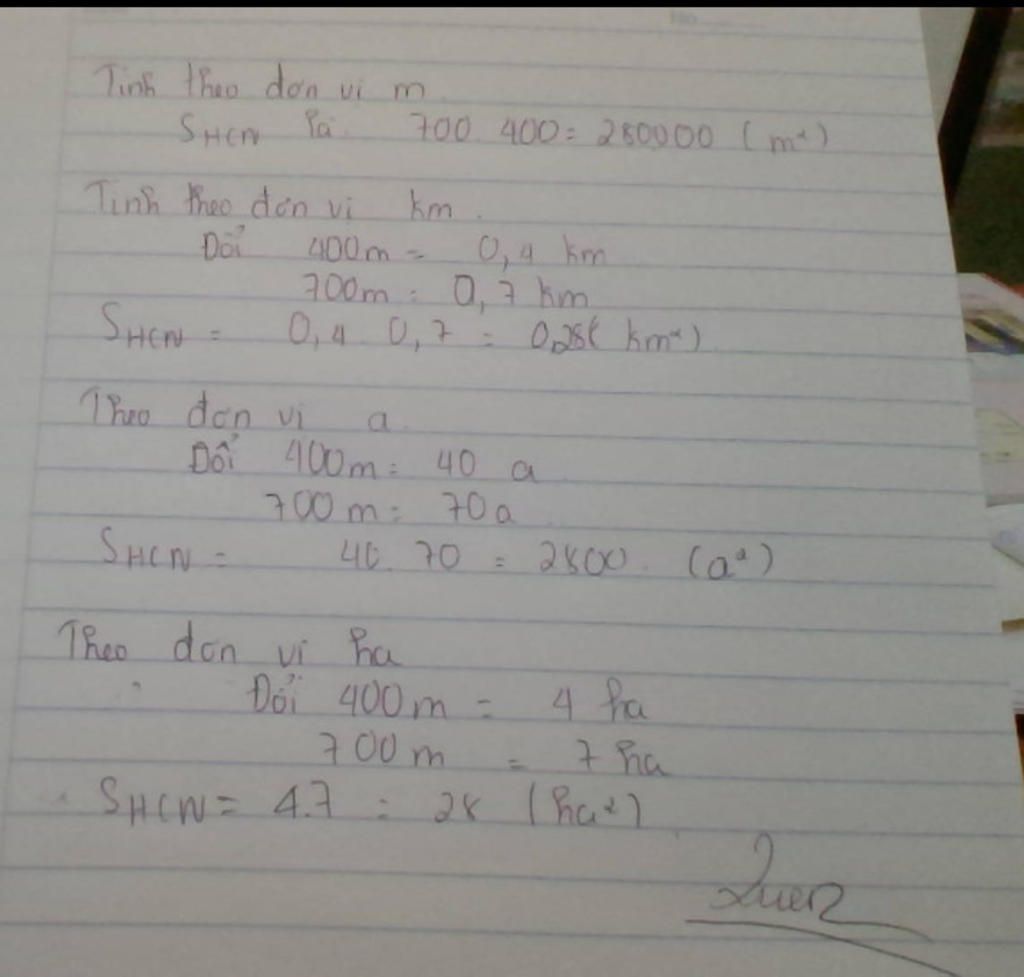 Tính theo đơn vị m
SHCN là 700 400 = 280000 (m²)
Tính theo đơn vị km.
Đổi 400m = 0,4 km
700m = 0,7 km
SHCN = 0,4 0,7 = 0,28 (km²)
Theo đơn vị a.
Đổi 400m = 40 a
700m = 70a
SHCN = 40.70 = 2800. (a²)
Theo đơn vị ha
Đổi 400m = 4 ha
700m = 7 ha
SHCN = 4.7 = 28 (ha²)